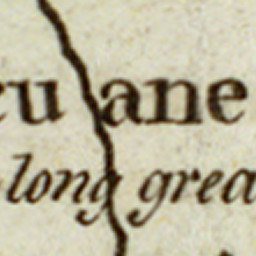 cu ane
long grea